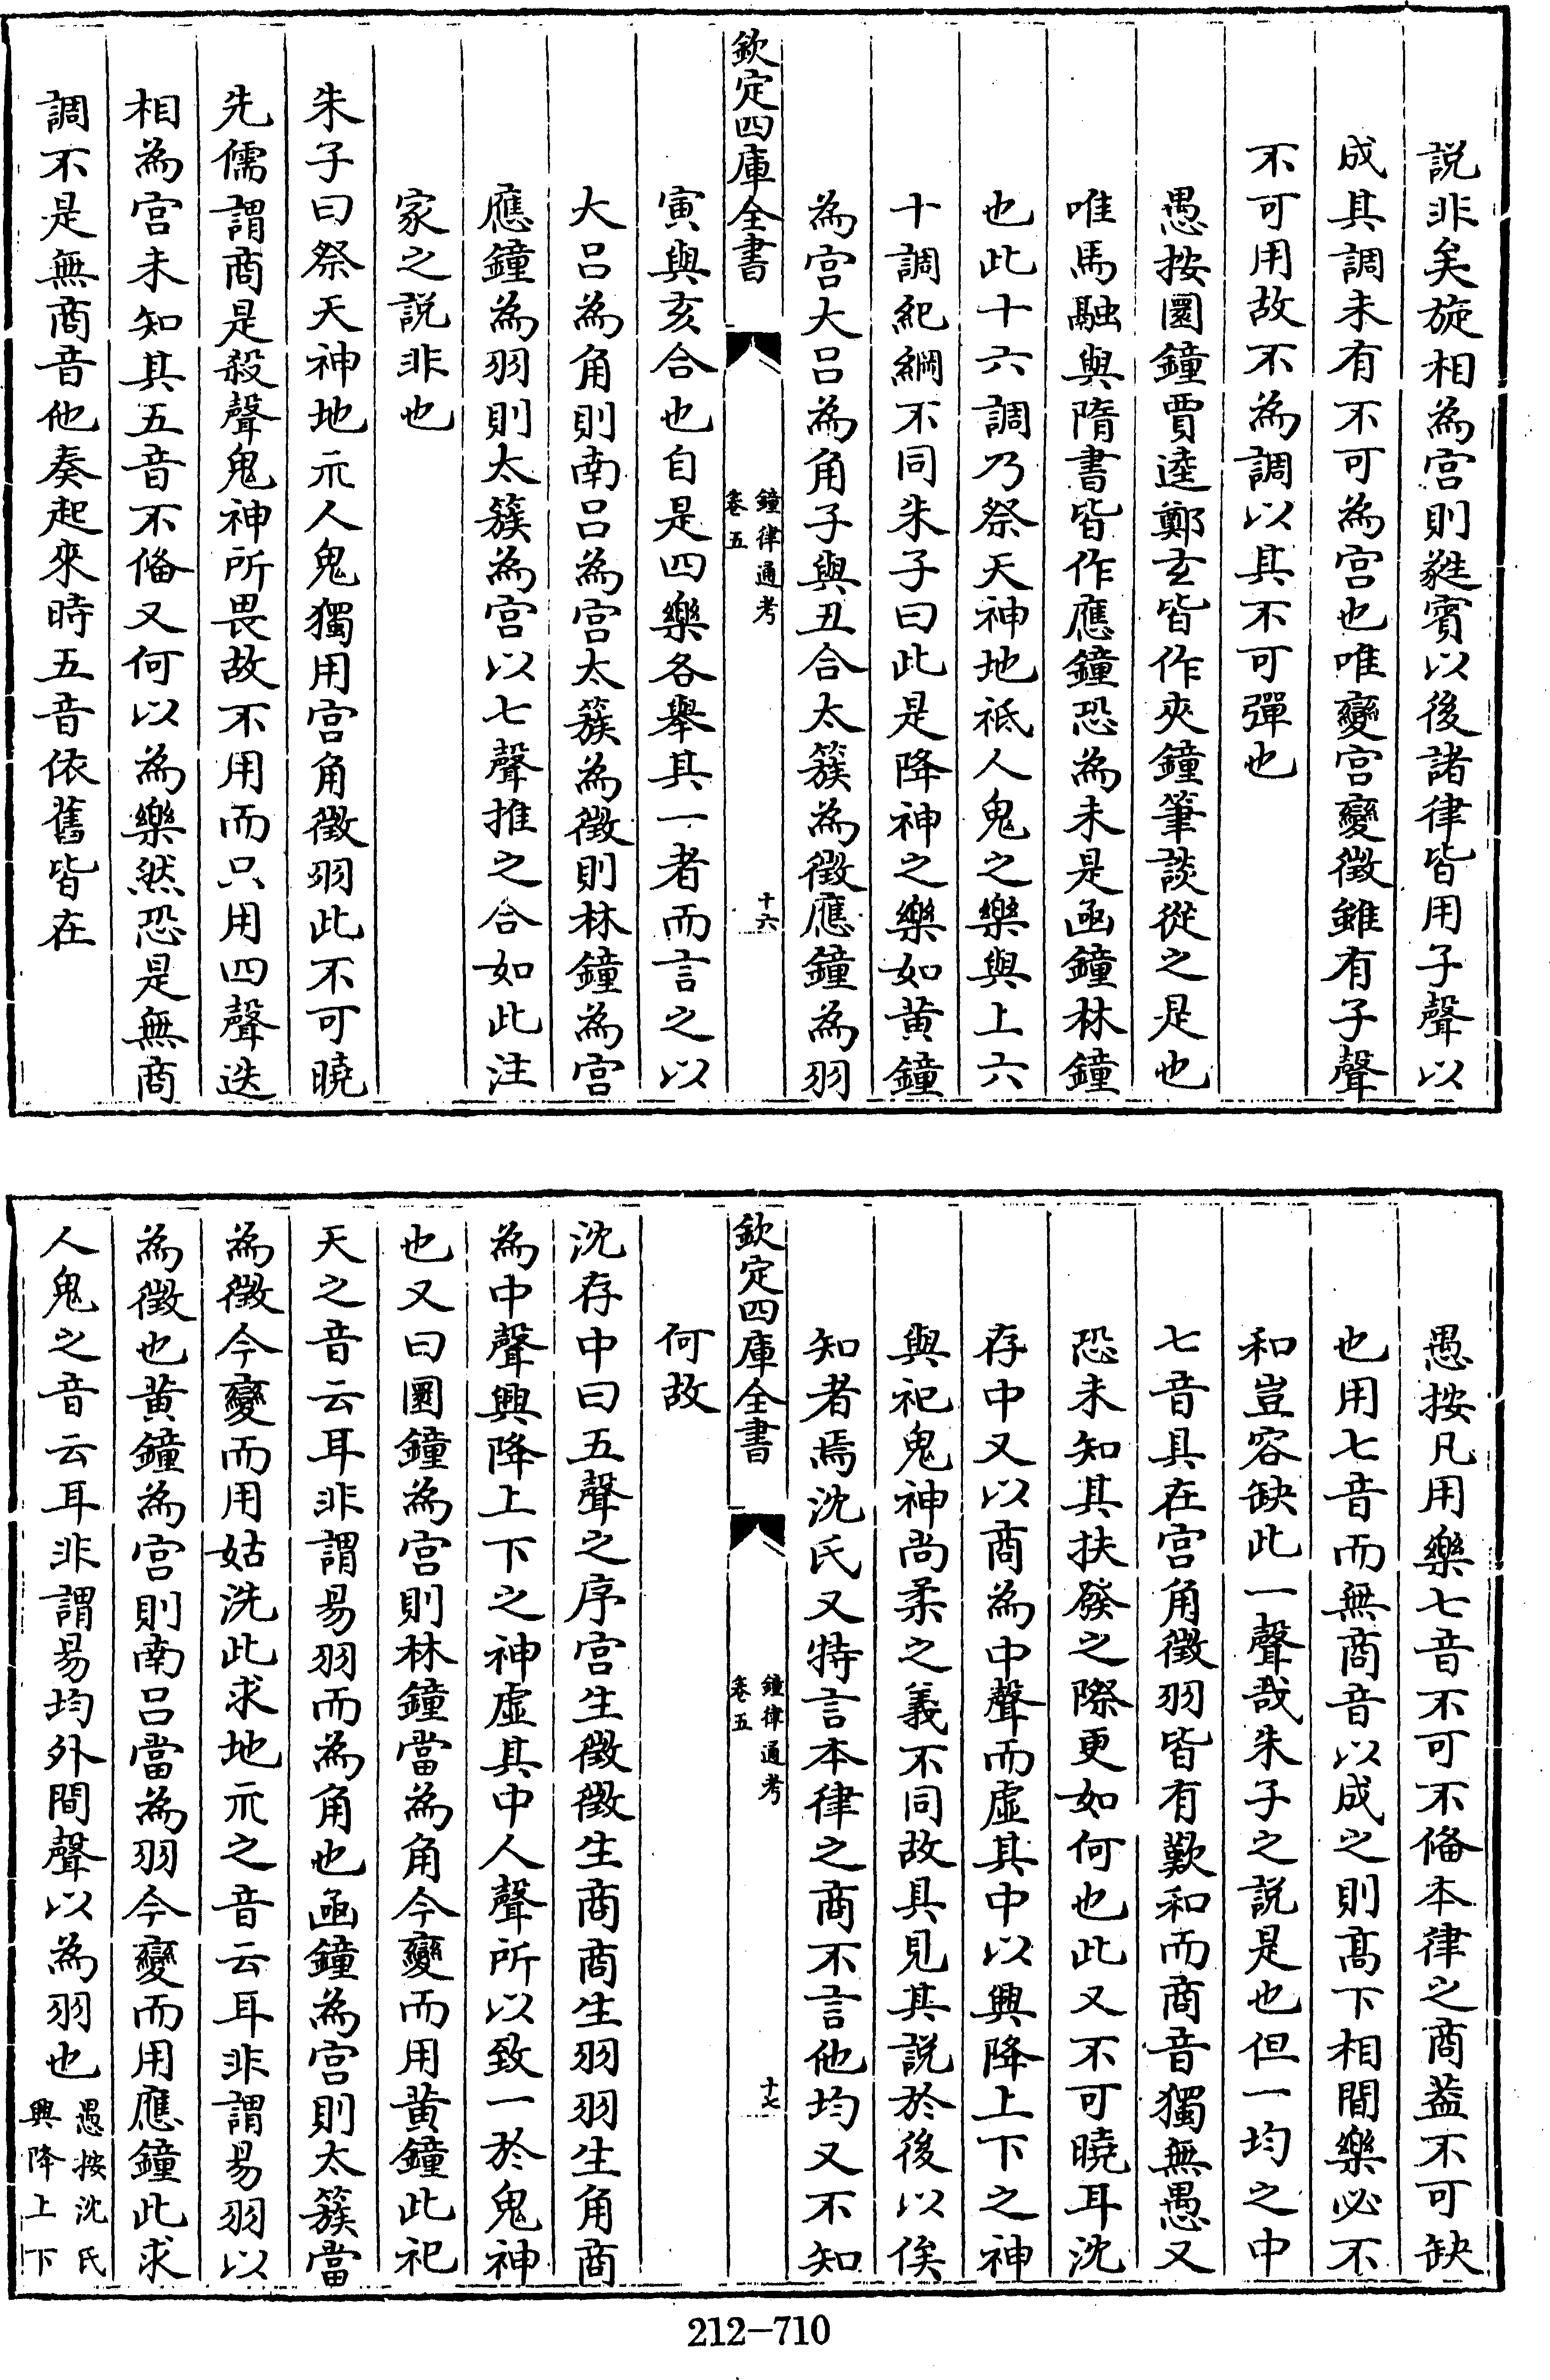 説非矣旋相為宫則蕤賔以後諸律皆用子聲以
成其調未有不可為宫也唯變宫變徴雖有子聲
不可用故不為調以其不可彈也
愚按圜鐘賈逵鄭玄皆作夾鐘筆談從之是也
唯馬融與隋書皆作應鐘恐為未是函鐘林鐘
也此十六調乃祭天神地祗人鬼之樂與上六
十調紀綱不同朱子曰此是降神之樂如黄鐘
為宫大吕為角子與丑合太簇為徴應鐘為羽
欽定四庫全書
鐘律通考
卷五
十六
寅與亥合也自是四樂各舉其一者而言之以
大吕為角則南吕為宫太簇為徴則林鐘為宫
應鐘為羽則太簇為宫以七聲推之合如此注
家之説非也
朱子曰祭天神地示人鬼獨用宫角徴羽此不可曉
先儒謂商是殺聲鬼神所畏故不用而只用四聲迭
相為宫未知其五音不備又何以為樂然恐是無商
調不是無商音他奏起來時五音依舊皆在
愚按凡用樂七音不可不備本律之商葢不可缺
也用七音而無商音以成之則髙下相間樂必不
和豈容缺此一聲哉朱子之説是也但一均之中
七音具在宫角徴羽皆有歎和而商音獨無愚又
恐未知其扶發之際更如何也此又不可曉耳沈
存中又以商為中聲而虚其中以興降上下之神
與祀鬼神尚柔之義不同故具見其説於後以俟
知者焉沈氏又特言本律之商不言他均又不知
欽定四庫全書
鐘律通考
卷五
十七
何故
沈存中曰五聲之序宫生徴徴生商商生羽羽生角商
為中聲興降上下之神虚其中人聲所以致一於鬼神
也又曰圜鐘為宫則林鐘當為角今變而用黄鐘此祀
天之音云耳非謂易羽而為角也函鐘為宫則太簇當
為徴今變而用姑洗此求地示之音云耳非謂易羽以
為徴也黄鐘為宫則南吕當為羽今變而用應鐘此求
人鬼之音云耳非謂易均外間聲以為羽也
愚按沈氏
興降上下
212-710